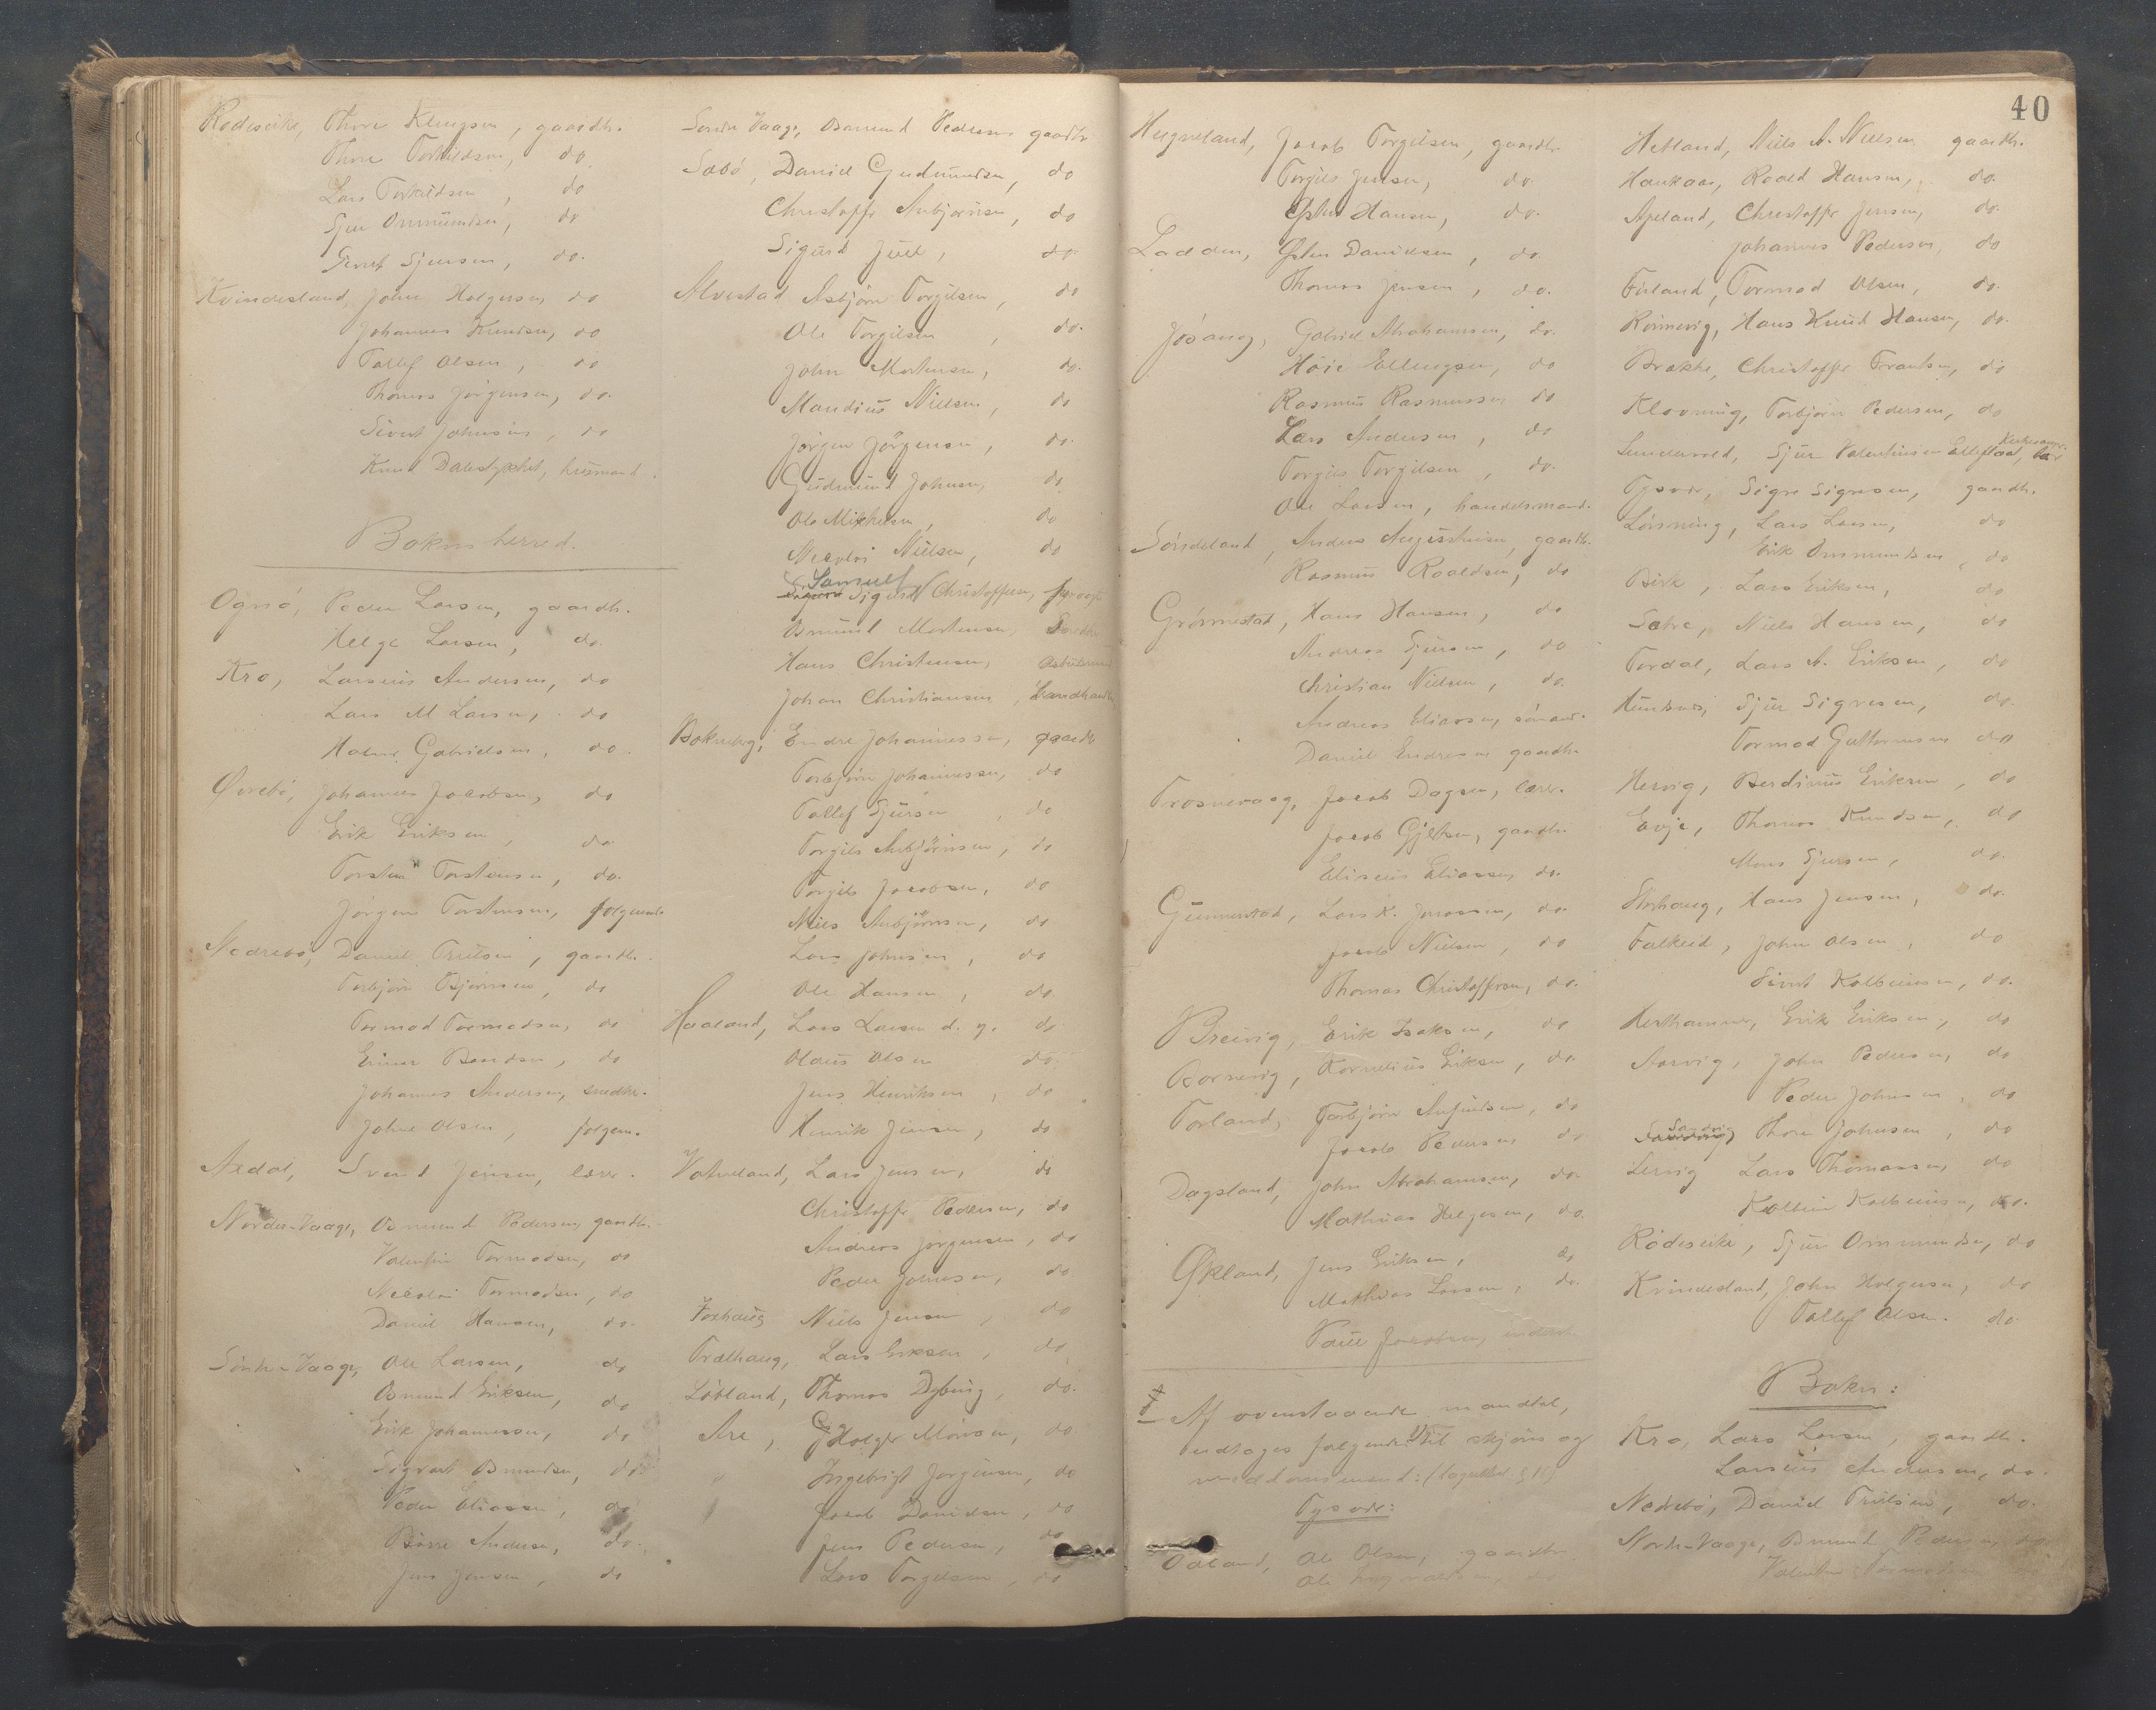 Rødeseike, Thore Klungsen, gaardb.
Thore Torkildsen, do
Lars Torkildsen, do
Sjur Ommundsen, do
Sjursen, do.
Kvindesland, John Holgersen, do
Johannes Knudsen, do
Tollef Olsen, do
Thomas Jørgensen, do.
Sivert Johnsen, do
Knud Dalestykket, husmand.
Bokns herred.
Ognø, Peder Larsen, gaardb.
Helge Larsen, do.
Kro, Larsius Andersen, do
Lars M Larsen, do
Gabrielsen, do.
Øvrebø, Johannes Jacobsen, do
Erik Eriksen, do
Torsten Torstensen, do.
Jørgen Torstensen, folgem.
Nedrebø, Daniel Truilsen, gaardb.
Torbjørn Bjørnsen, do
Tormod Tormodsen, do
Einar Baardsen, do
Johannes Andersen, snedker.
John Olsen, folgem.
Axdal, Svend Jensen, lærer.
Nordre-Vaage, Osmund Pedersen, gaardb.
Valentin Tormodsen, do
Nicolai Tormodsen, do
Daniel Hansen, do.
Søndre-Vaage, Ole Larsen, do
Osmund Eriksen, do
Erik Johannessen, do
Sigvart Osmundsen, do
Peder Eliassen, do
Børre Andersen, do.
Jens Jensen, do
Søndre Vaage, Osmund Pedersen gaardbr
Sæbø, Daniel Gudmundsen, do
Christoffer Asbjørnsen, do
Sigurd Juel, do
Alvestad Asbjørn Torgilsen, do
Ole Torgilsen, do.
John Mortensen, do.
Mandius Nielsen, do
Jørgen Jörgensen, do.
Gudmund Johnsen, do
Ole Mikkelsen, do
Nicolai Nielsen, do
Samuel
Sigurd Christoffersen,
Osmund Mortensen, Snedker
Hans Christensen,
Johan Christiansen, Landhandler
Boknberg, Endre Johannessen, gaardb
Torbjørn Johannessen, do
Tollef Sjursen, do
Torgils Asbjörnsen, do
Torgils Jacobsen, do
Niels Asbjörnsen, do
Lars Johnsen, do
Ole Hansen, do.
Haaland, Lars Larsen d. y. do
Olaus Olsen do.
Jens Henriksen, do
Henrik Jensen, do
Vatneland, Lars Jensen, do
Christoffer Pedersen, do
Andreas Jørgensen, do
Peder Johnsen, do
Foxhaug Niels Jensen, do
Trælhaug, Lars Eriksen, do
Løkland, Thomas Dybing, do.
Are, Holger Mønsen, do
" Ingebrigt Jørgensen, do
" Jacob Danielsen, do
Jens Pedersen, do
Lars Torgilsen, do
40
Hegneland, Jacob Torgilsen, gaardb.
Torgils Jensen, do.
Østen Hansen, do.
Ladden, Østen Danielsen, do.
Thomas Jensen, do.
Jøsang, Gabriel Abrahamsen, do.
Höie Ellingsen, do
Rasmus Rasmussen do
Lars Andersen, do
Torgils Torgilsen, do.
Ole Larsen, handelsmand.
Sørsdeland, Anders Augustinsen, gaardb.
Rasmus Roaldsen, do
Grønnestad, Hans Hansen, do
Andreas Sjursen, do
Christian Nielsen, do.
Andreas Eliassen,
Daniel Endresen gaardb.
Trosnavaag, Jacob Dagsen, lærer.
Jacob Gjertsen, gaardb.
Eliseus Eliassen do.
Gunnarstad, Lars K. Jonassen, do.
Jacob Nielsen, do
Thomas Christoffersen, do.
Breivig, Erik Isaksen, do
Bornevig, Kornelius Eriksen, do.
Torland, Torbjørn Anfindsen, do
Jacob Pedersen do
Dagsland, John Abrahamsen, do.
Mathias Helgesen, do.
Økland, Jens Eriksen, do
Mathias Larsen, do.
Paul Jacobsen,
Af ovenstaaende mandtal,
udtages følgende til skjøns og
meddomsmænd:
Tysvær:
Odland, Ole Olsen, gaardbr.
Hetland, Niels A. Nielsen gaardb.
Haukaas, Roald Hansen, do.
Apeland, Christoffer Jensen, do.
Johannes Pedersen, do
Førland, Tormod Olsen, do.
Rønnevig, Hans Knud Hansen, do.
Brække, Christoffer Frantsen, do
Klovning, Torbjørn Pedersen, do
Sundervold, Sjur Valentinsen Elleflaat, Kirkesanger
Tysvær, Sigve Sigvesen, gaardb.
Løvsning, Lars Larsen, do
Erik Ommundsen, do
Birk, Lars Eriksen, do
Sætre, Niels Hansen, do
Tordal, Lars A. Eriksen, do
Hundsnes, Sjur Sigvesen, do.
Tormod Guttormsen do
Hervig, Berdinius Eriksen, do
Evje, Thomas Knudsen, do
Mons Sjursen, do.
Slothaug, Hans Jensen, do.
Falkeid, John Olsen, do
Sivert Kolbeinsen, do.
Kerthammer, Erik Eriksen, do
Aarvig, John Pedersen, do
Peder Johnsen, do
Sandvig Thore Johnsen, do
Lervig Lars Thomassen, do
Kolbein Kolbeinsen, do.
Rødeseike, Sjur Ommundsen, do
Kvindesland, John Holgersen, do
Tollef Olsen. do.
Bokn:
Kro, Lars Larsen, gaardb.
Larsius Andersen, do.
Nedrebø, Daniel Truilsen, do.
Nordre-Vaage, Osmund Pedersen, do
Valentin Tormodsen